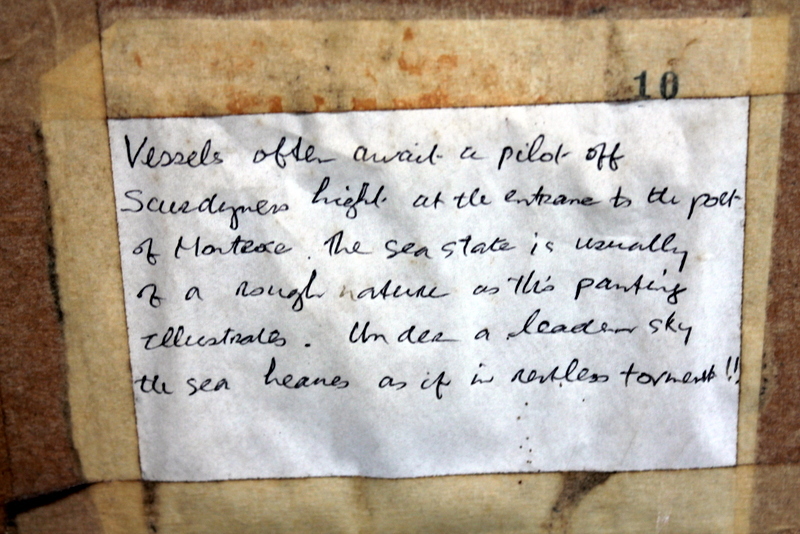 10
Vessels often await a pilot off
Scurdyness light at the entrance to the port
of Montrose. The sea state is usually
of a rough nature as this painting
illustrates. Under a leaden sky
the sea heaves as if in restless torment!!